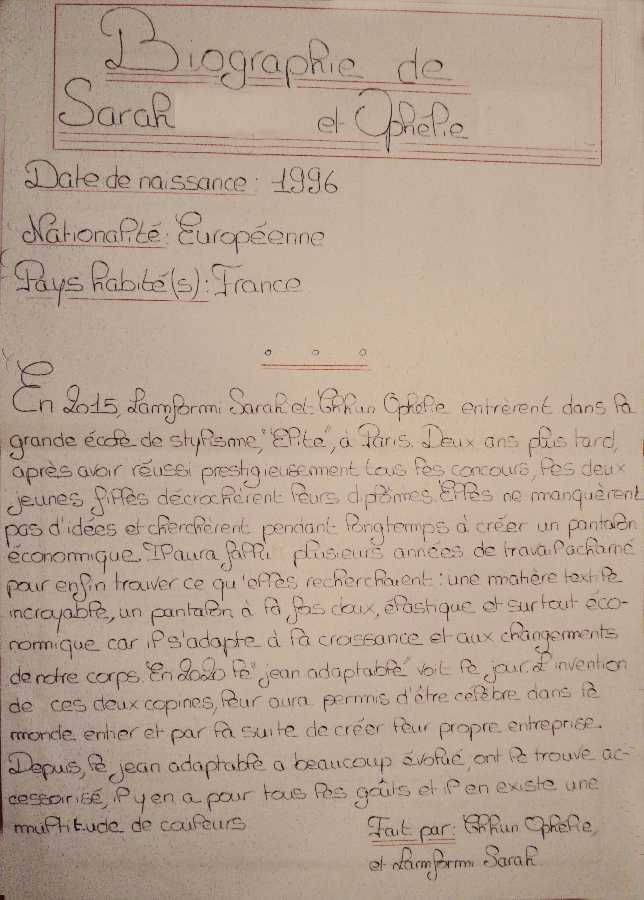 Biographie de
Sarah et Ophélie
Date de naissance : 1996
Nationalité : Européenne
Pays habité(s) : France
En 2015, Lamformi Sarah et Chhun Ophélie entrèrent dans la
grande école de stylisme, "Elite", à Paris. Deux ans plus tard,
après avoir réussi prestigieusement tous les concours, les deux
jeunes filles décrochèrent leurs diplômes. Elles ne manquèrent
pas d'idées et cherchèrent pendant longtemps à créer un pantalon
économique. Il aura fallu plusieurs années de travail acharné
pour enfin trouver ce qu'elles recherchaient : une matière textile
incroyable, un pantalon à la fois doux, élastique et surtout éco-
nomique car il s'adapte à la croissance et aux changements
de notre corps. En 2020 le "jean adaptable" voit le jour. L'invention
de ces deux copines, leur aura permis d'être célèbre dans le
monde entier et par la suite de créer leur propre entreprise.
Depuis, le jean adaptable a beaucoup évolué, ont le trouve ac-
cessoirisé, il y en a pour tous les goûts et il en existe une
multitude de couleurs
Fait par : Chhun Ophélie,
et Lamformi Sarah